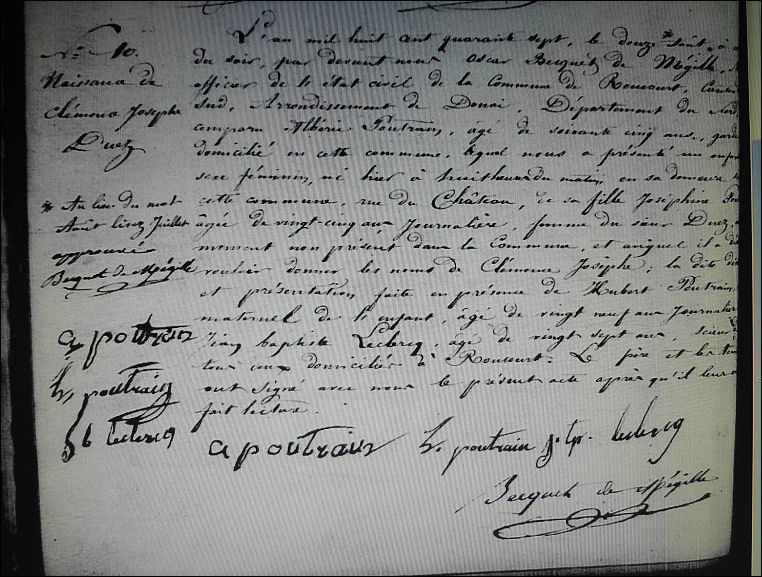 N.º 10.
Naissance de
Clémence Josephe
Duez
* Au lieu du mot
Août lisez Juillet
approuvé
Becquet de Mégille
a poutrain
h, poutrain
J b leclercq
L'an mil huit cent quarante sept, le douze * août, à
du soir, par devant nous Oscar Becquet de Mégille,
officier de l'état civil de la Commune de Roucourt, Canton
sud, Arrondissement de Douai, Département du Nord
comparu Albéric Poutrain, âgé de soixante cinq ans, garde
domicilié en cette commune, lequel nous a présenté un enfant
sexe féminin, né hier à huit heures du matin, en sa demeure
cette commune, rue du Château, de sa fille Joséphine
âgée de vingt-cinq ans Journalière, femme du sieur Duez,
moment non présent dans la Commune, et auquel il a
vouloir donner les noms de Clémence Josèphe; la dite
et présentation faite en présence de Hubert Poutrain,
maternel de l'enfant, âgé de vingt neuf ans Journalier
Jean baptiste Leclercq, âgé de vingt sept ans, scieur
tous deux domiciliés à Roucourt. Le père et les
ont signé avec nous le présent acte après qu'il leur
fait lecture.
a poutrain h, poutrain j. bp. leclercq
Becquet de Mégille